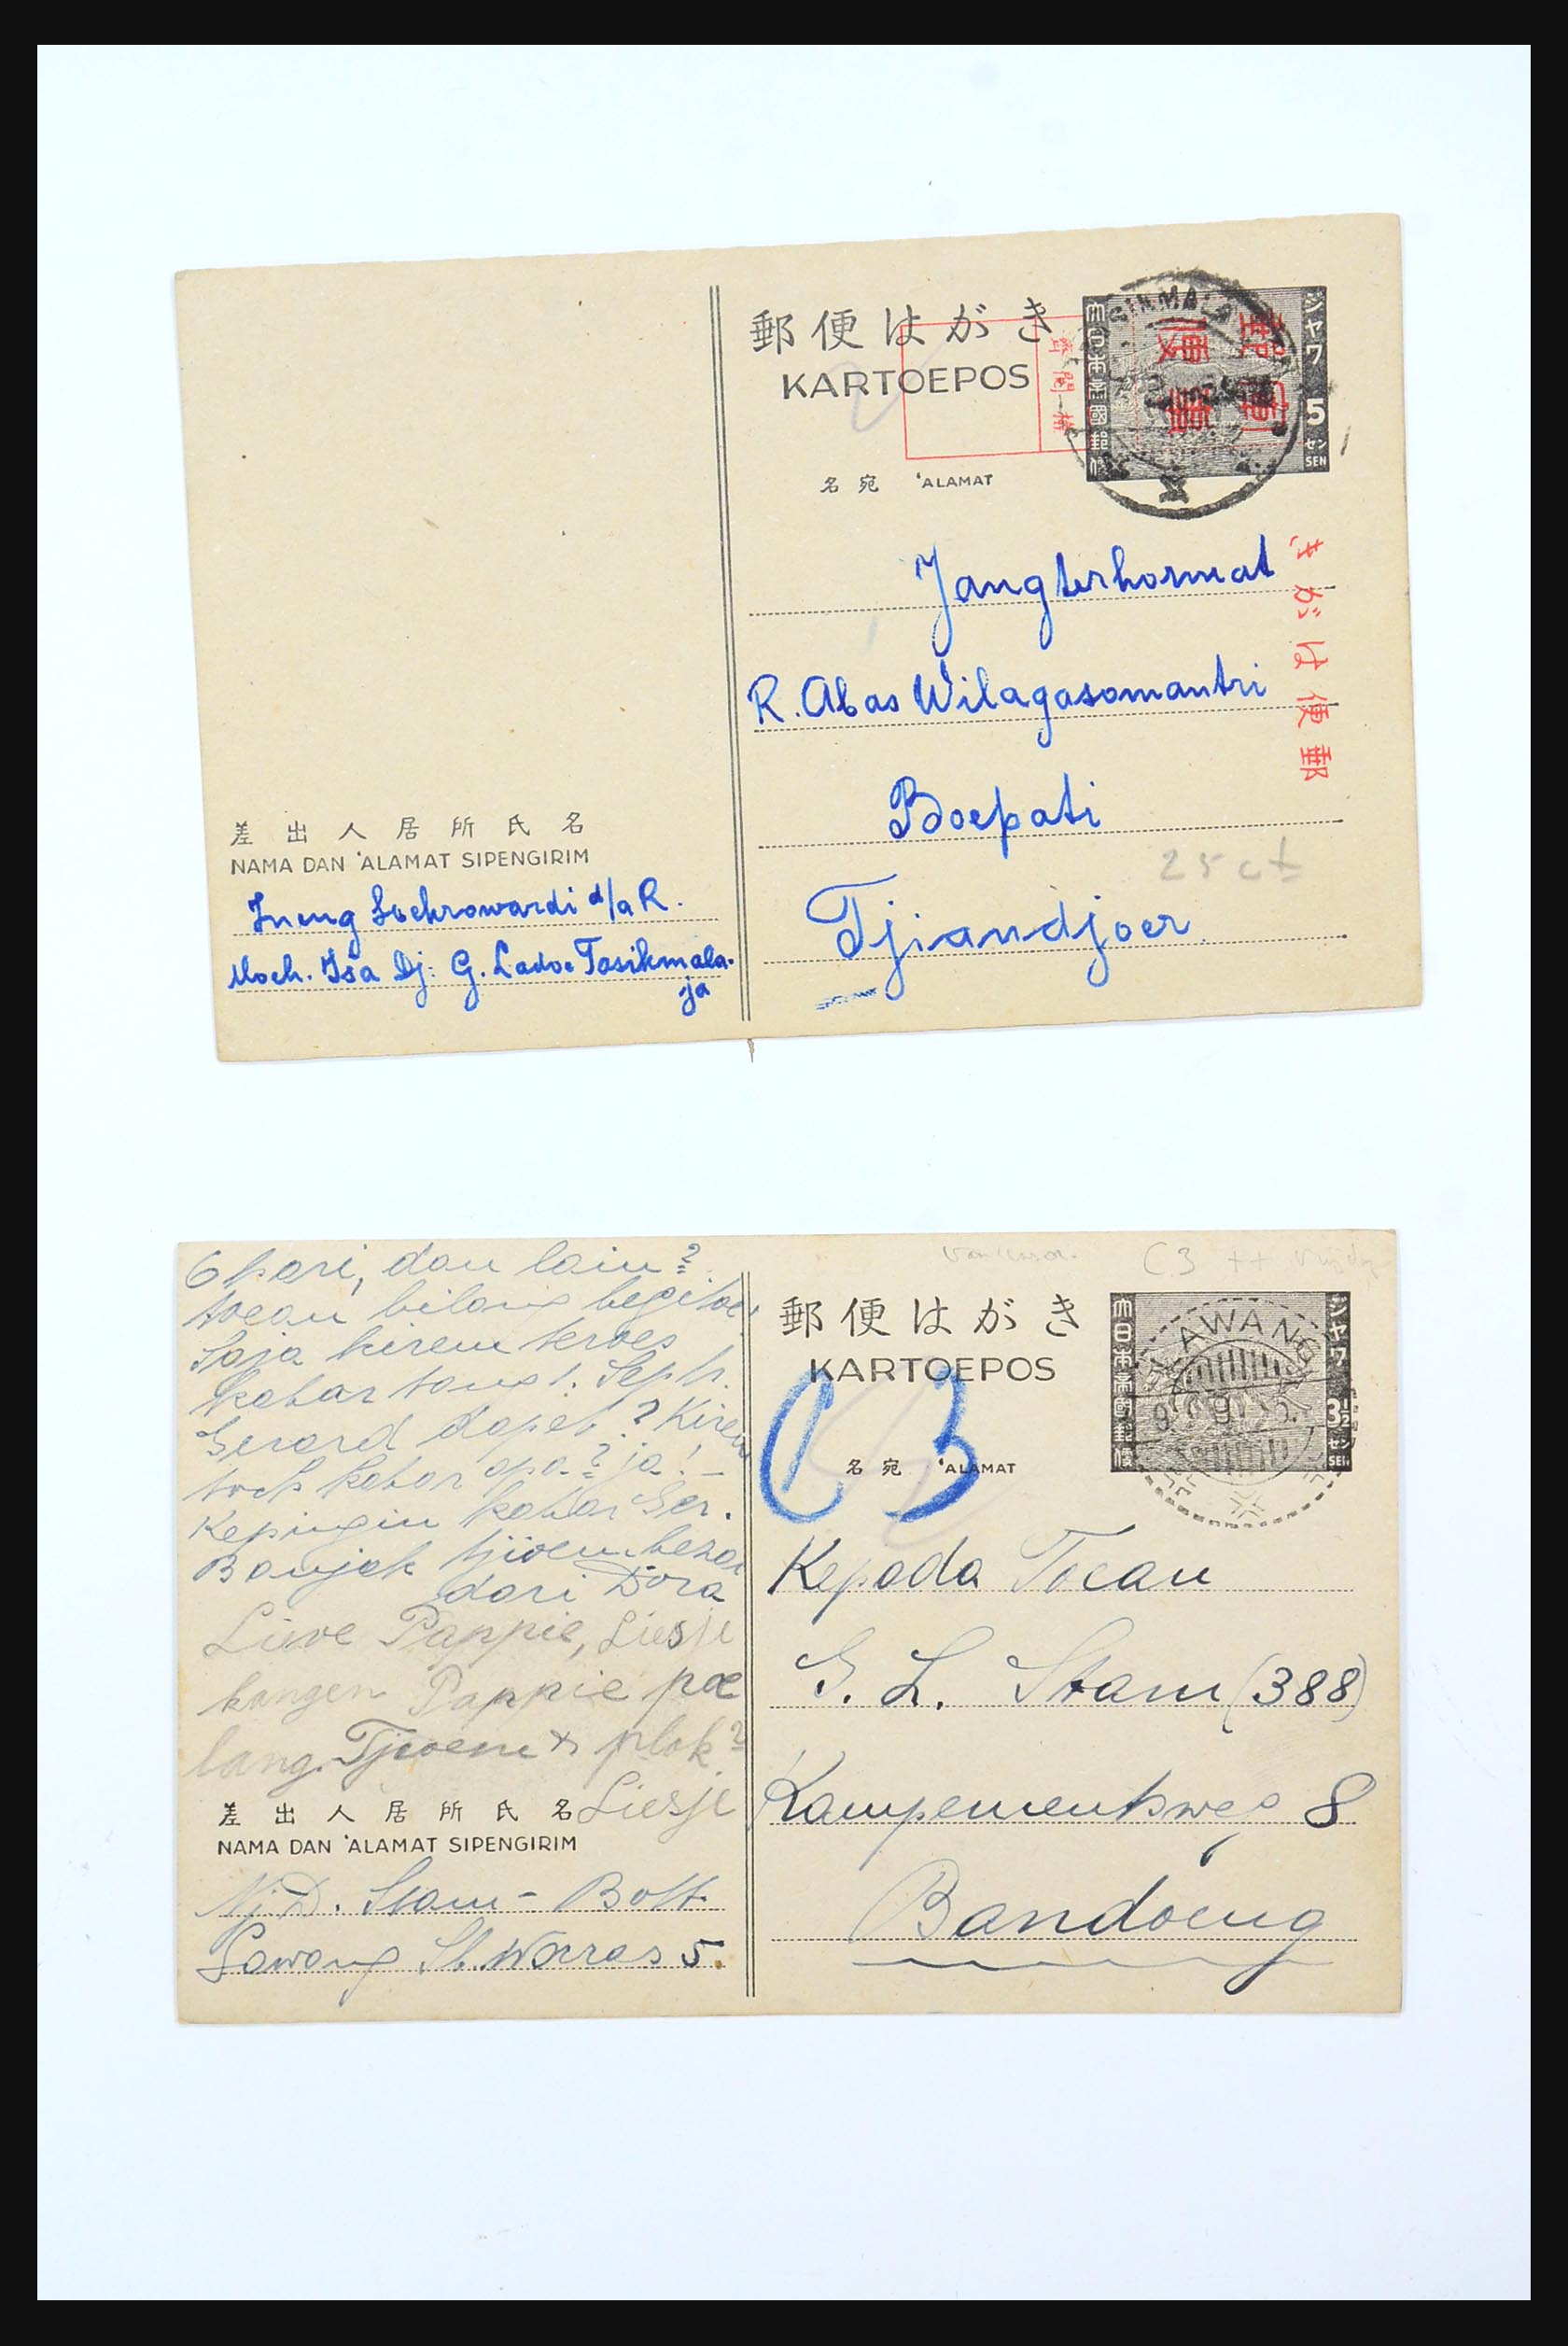 郵便はがき
KARTOEPOS
大日本帝國郵便
ジャワ
5
セン
SEN
軍事
郵便
検閲
郵便はがき
名宛 'ALAMAT
Jang terhormat
R. Abas Wilagasomantri
Boepati
25 ct
Tjiandjoer
差出人居所氏名
NAMA DAN 'ALAMAT SIPENGIRIM
Ineng Soehrowardi d/a R.
Moch. Isa Dj: G. Ladoe Tasikmala-
ja
6 hari, dan lain?
toean bilang begitoe,
Saja kirem teroes
kabar tang 1. Sept.
Gerard dapet? Kirem
toch kabar apa? ja! -
Kepingin kabar Ger.
Banjak tjioem besar
dari Dora
Lieve Pappie, Liesje
kangen Pappie poe
lang. Tjioem x plok?
Liesje
差出人居所氏名
NAMA DAN 'ALAMAT SIPENGIRIM
Nj. D. Stam - Bolt
Lawang St. Waras 5.
C3 ++
郵便はがき
KARTOEPOS
大日本帝國郵便
ジャワ
3½
セン
SEN
LAWANG
C3
名宛 'ALAMAT
Kepada Toean
G. L. Stam (388)
Kampementsweg 8
Bandoeng